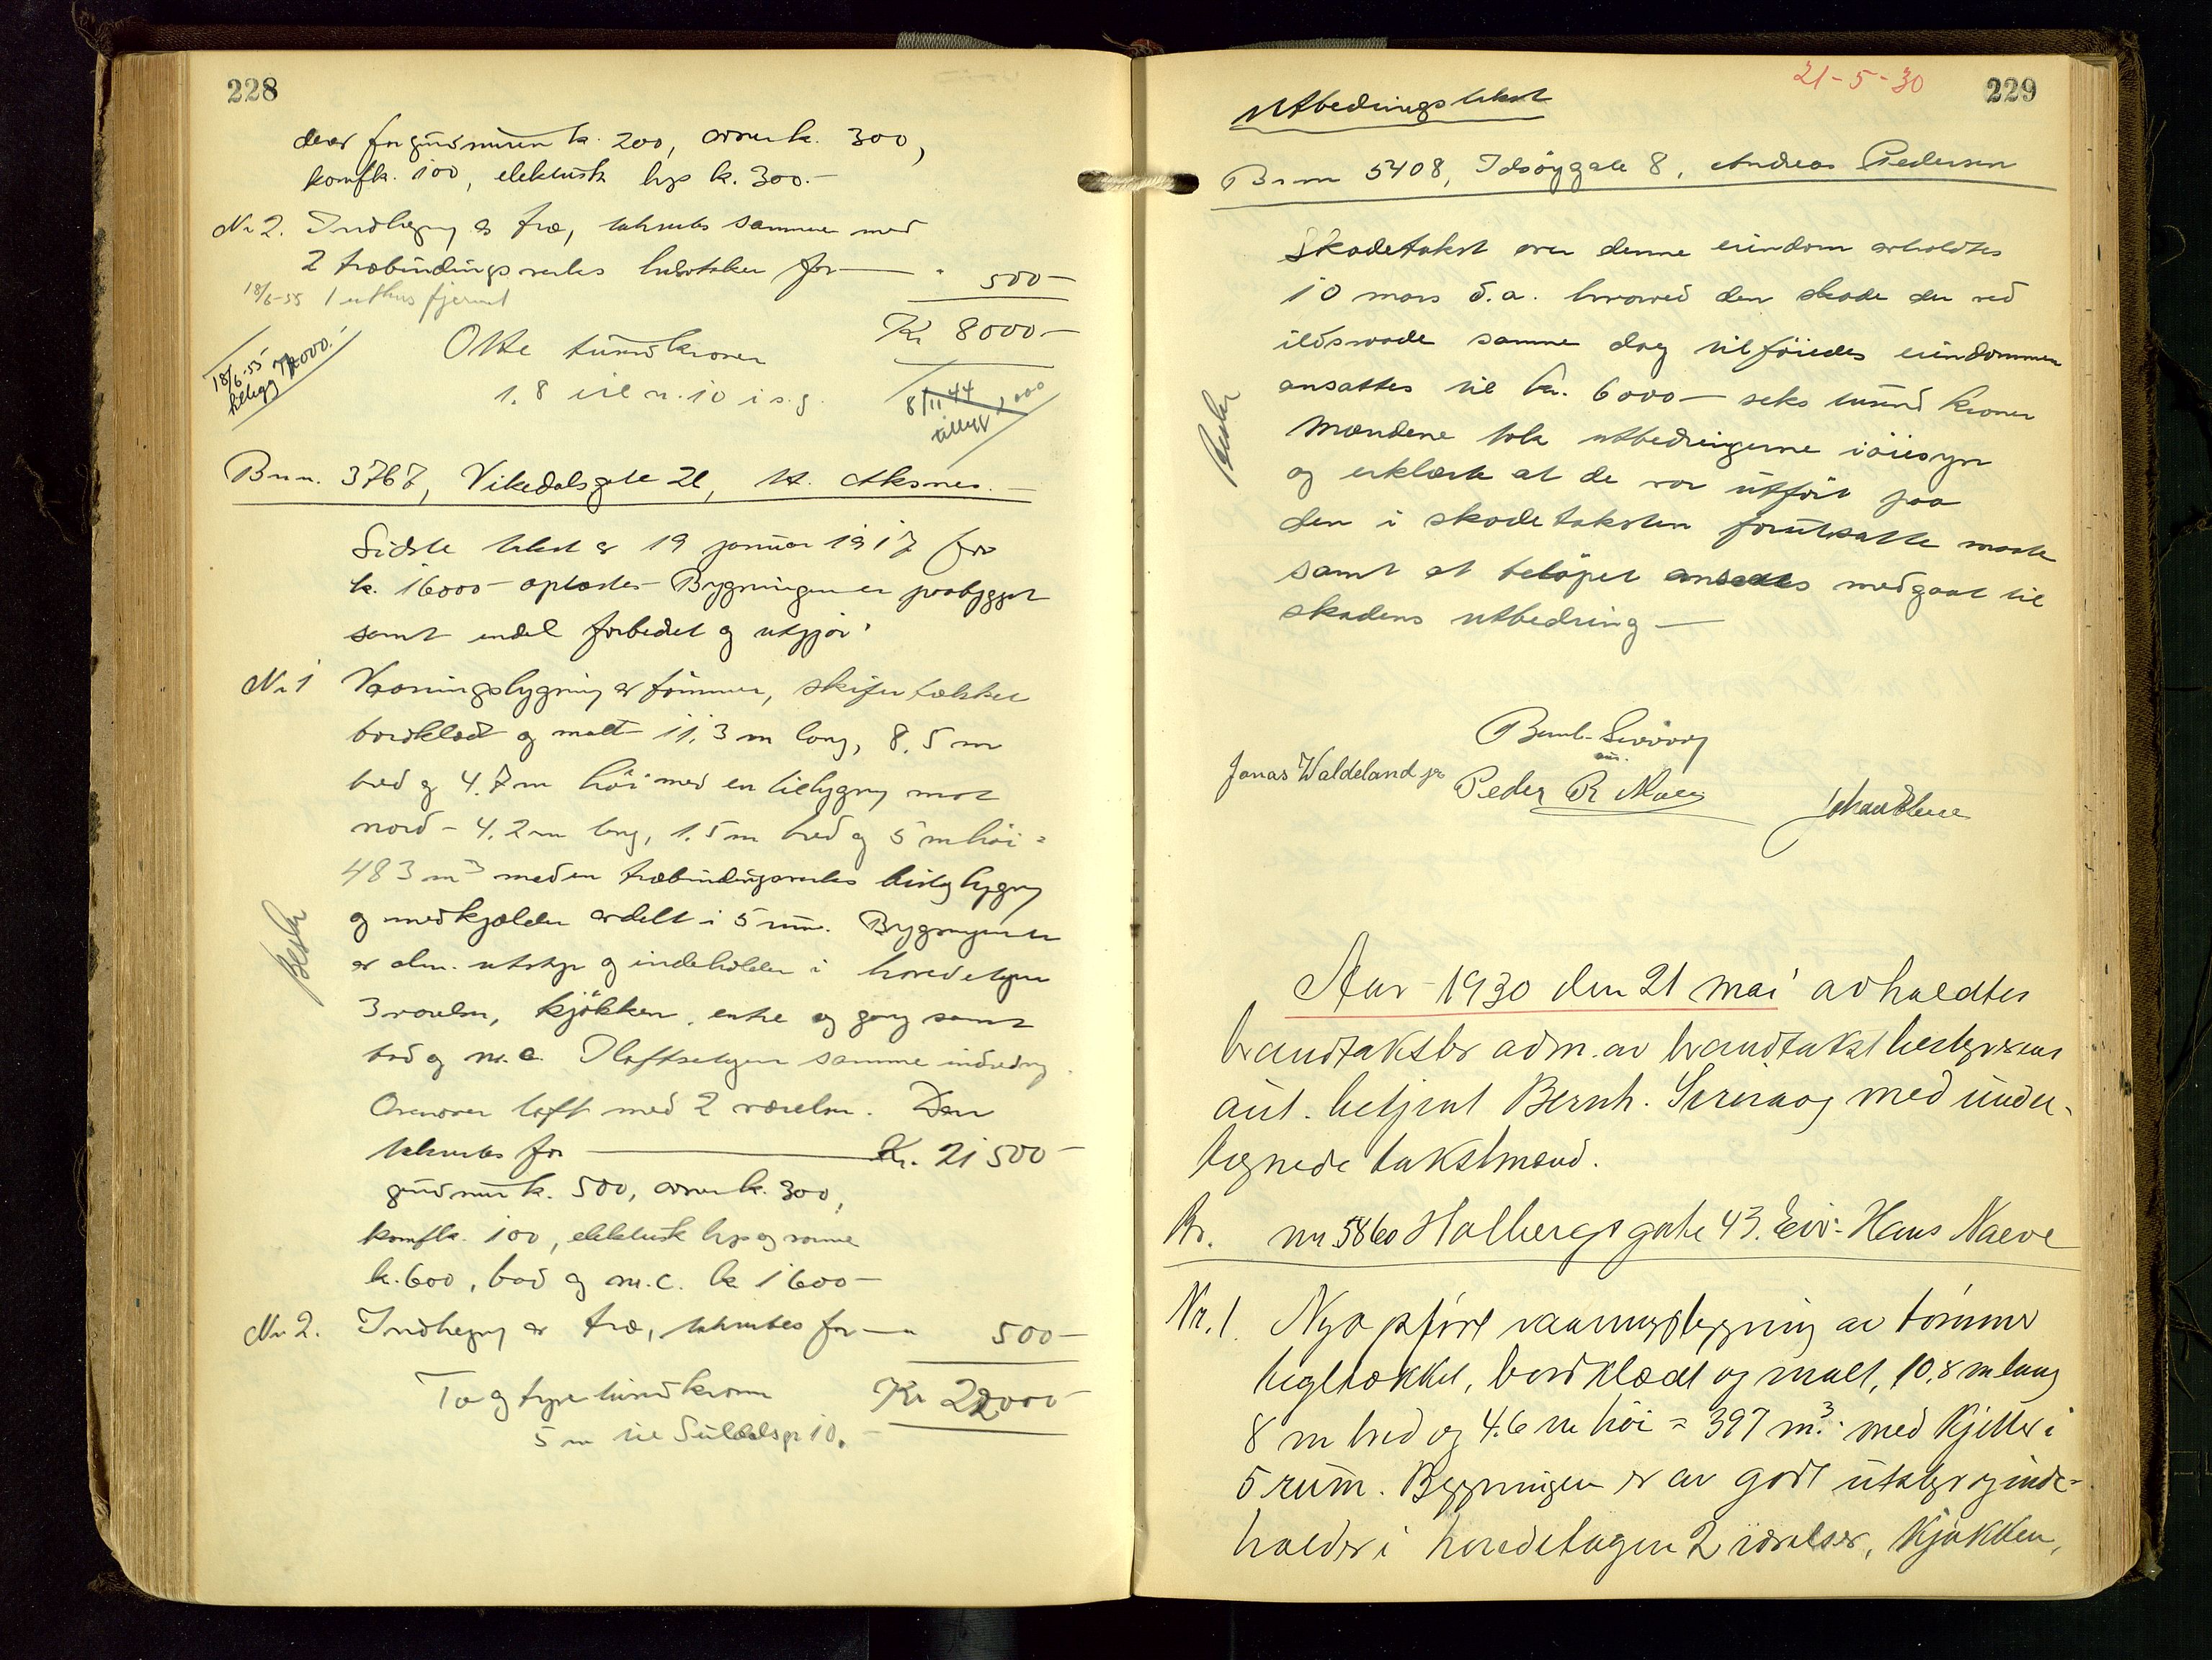 228
derav for grundmuren kr. 200, arner kr. 300,
komfkr. 100, elektrisk lys kr. 300.-
Nr 2. Indhegning av træ, takseres sammen med
2 træbindingsverks for — " 500-
18/6-55 1 uthus fjernet
Kr 8000-
Otte tusind kroner
18/6-55 tillegg
1. 8 til n. 10 i s.g.
8/11 44 tillegg 2000
Bn. n. 3767, Vikedalsgate 21, Aksnes.
Sidste takst av 19 januar 1917 for
kr. 16000- oplæstes- Bygningen er paabygget
samt endel forbedret og utgjør:
Nr 1 Vaaningsbygning av tømmer, skifertækket
bordklædt og malt 11.3 m lang, 8.5 m
bred og 4.7 m høi med en tilbygning mot
nord - 4.2 m lang, 1.5 m bred og 5 m høi =
483 m3 med en træbindingsverks bislagbygning
og med kjælder avdelt i 5 rum. Bygningen er
av alm. utstyr og indeholder i hovedetagen
3 værelser, kjøkken, entre og gang samt
bad og w.c. I loftsetagen samme indredning.
Ovenover loft med 2 værelser. Den
takseres for — Kr. 21 500-
grundmur kr. 500, arner kr. 300,
komfkr. 100, elektrisk lys og varme
kr. 600, bad og w.c. kr 1600-
Nr 2. Indhegning av træ, takseres for — " 500-
To og tyve tusind kroner Kr 22000-
5 m til Suldalsgt 10.
21-5-30
229
Utbedringstakst
Br nr 5408, Idsøygate 8, Andreas Pedersen
Skadetakst over denne eiendom avholdtes
10 mars d.a. hvorved den skade der ved
ildsvaade samme dag tilføiedes eiendommen
ansattes til kr. 6000- seks tusind kroner
Mændene tok utbedringerne i øiesyn
og erklærte at de var utført paa
den i skadetaksten forutsatte maate
samt at beløpet ansaaes medgaat til
skadens utbedring —
Bernh.
aut.
Jonas Waldeland jr
Peder R.
Aar 1930 den 21 mai avholdtes
brandtakster adm. av brandtakstbestyrerens
aut. betjent Bernh. med under-
tegnede takstmænd.
Br. nr. 5860 Holbergs gate 43. Eier: Hans Naeve
Nr. 1. Nyopført vaaningsbygning av tømmer
tegltækket, bordklædt og malt, 10,8 m lang
8 m bred og 4.6 m høi = 397 m3. med Kjeller i
5 rum. Bygningen er av godt utstyr og inde-
holder i hovedetagen 2 værelser, Kjøkken,